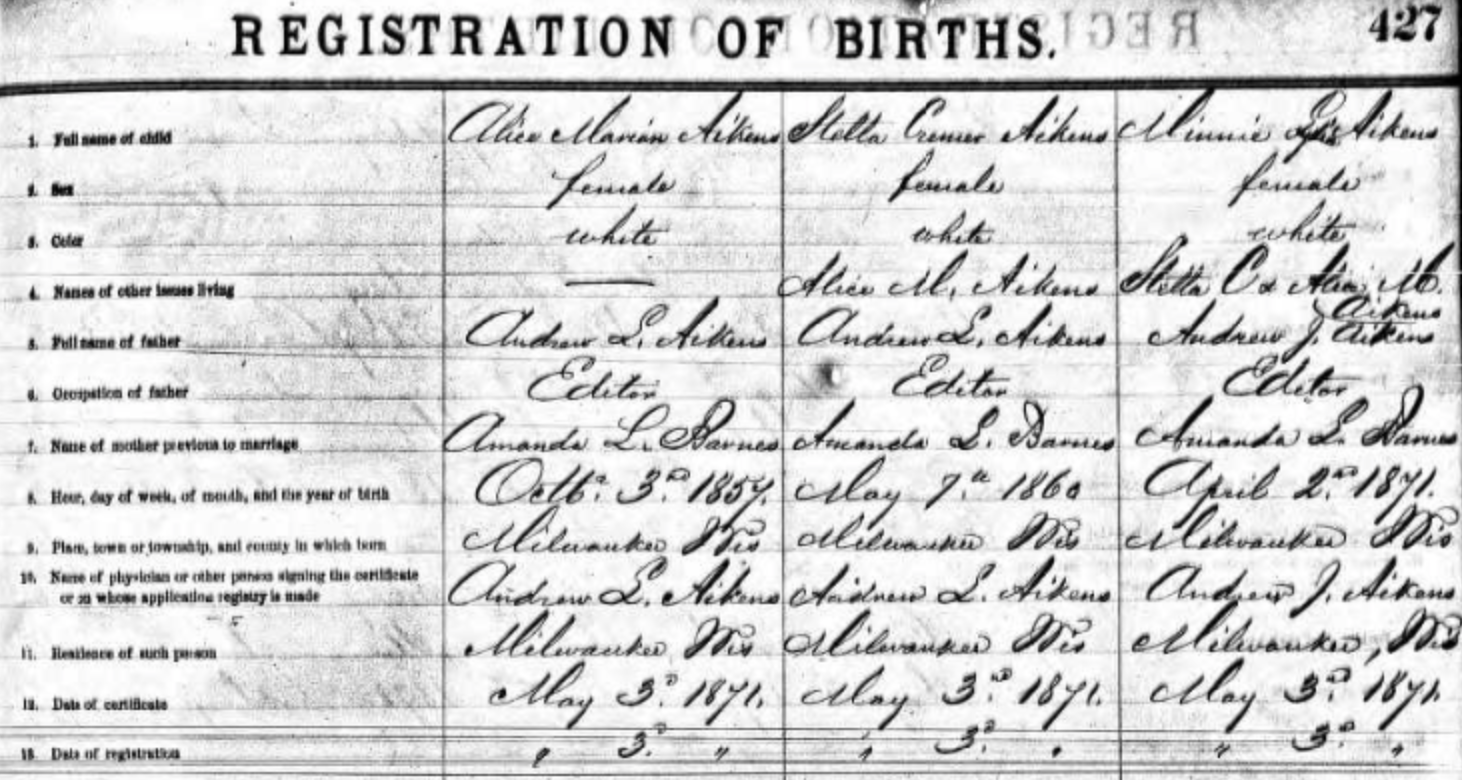 REGISTRATION OF BIRTHS. 427
1. Full name of child Alice Marian Aikens Stella Cremer Aikens Minnie Aikens
2. Sex female female female
3. Color white white white
4. Names of other issues living — Alice M. Aikens Stella C & Alice M. Aikens
5. Full name of father Andrew L. Aikens Andrew L. Aikens Andrew J. Aikens
6. Occupation of father Editor Editor Editor
7. Name of mother previous to marriage Amanda L. Barnes Amanda L. Barnes Amanda L. Barnes
8. Hour, day of week, of month, and the year of birth Octb. 3d 1857. May 7th 1860 April 2nd 1871.
9. Place, town or township, and county in which born Milwaukee Wis Milwaukee Wis Milwaukee Wis
10. Name of physician or other person signing the certificate
or on whose application registry is made Andrew L. Aikens Andrew L. Aikens Andrew J. Aikens
11. Residence of such person Milwaukee Wis Milwaukee Wis Milwaukee, Wis
12. Date of certificate May 3d 1871. May 3rd 1871. May 3d 1871.
13. Date of registration " 3d " " 3d " " 3d "